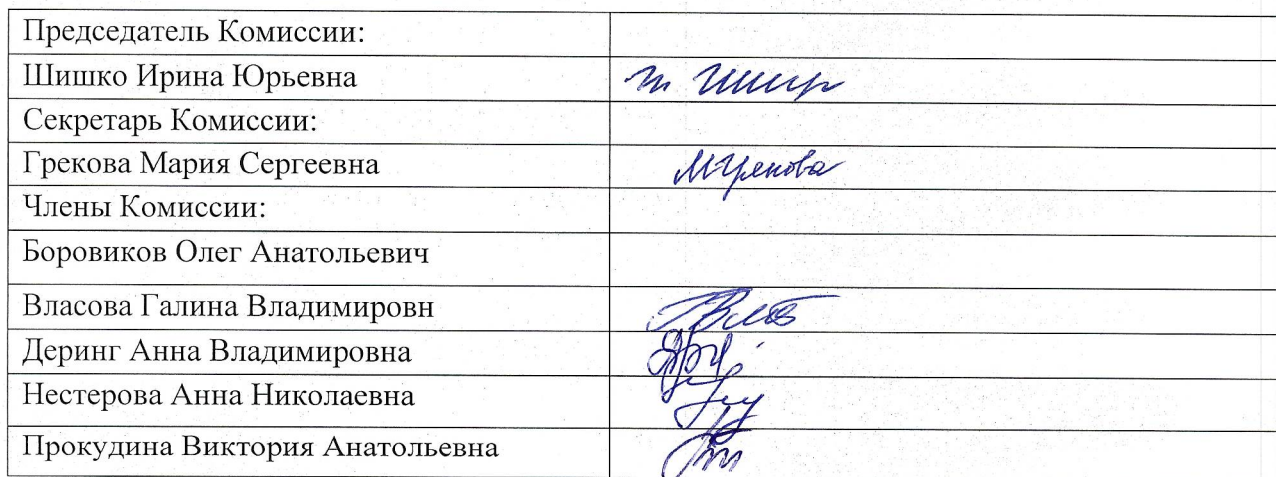 Председатель Комиссии:
Шишко Ирина Юрьевна
Секретарь Комиссии:
Грекова Мария Сергеевна
Члены Комиссии:
Боровиков Олег Анатольевич
Власова Галина Владимировн
Деринг Анна Владимировна
Нестерова Анна Николаевна
Прокудина Виктория Анатольевна